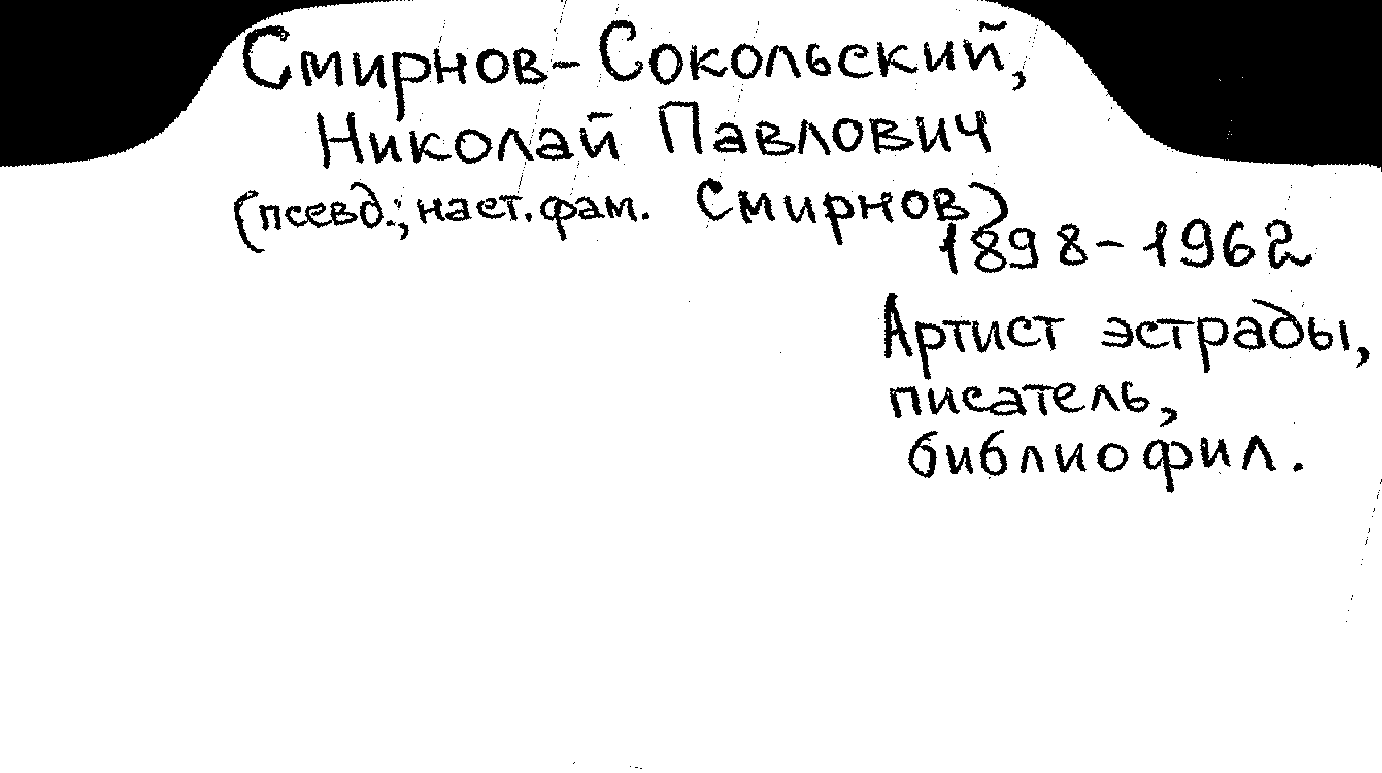 Смирнов-Сокольский,
Николай Павлович
(псевд.; наст. фам. Смирнов)
1898-1962
Артист эстрады,
писатель,
библиофил.